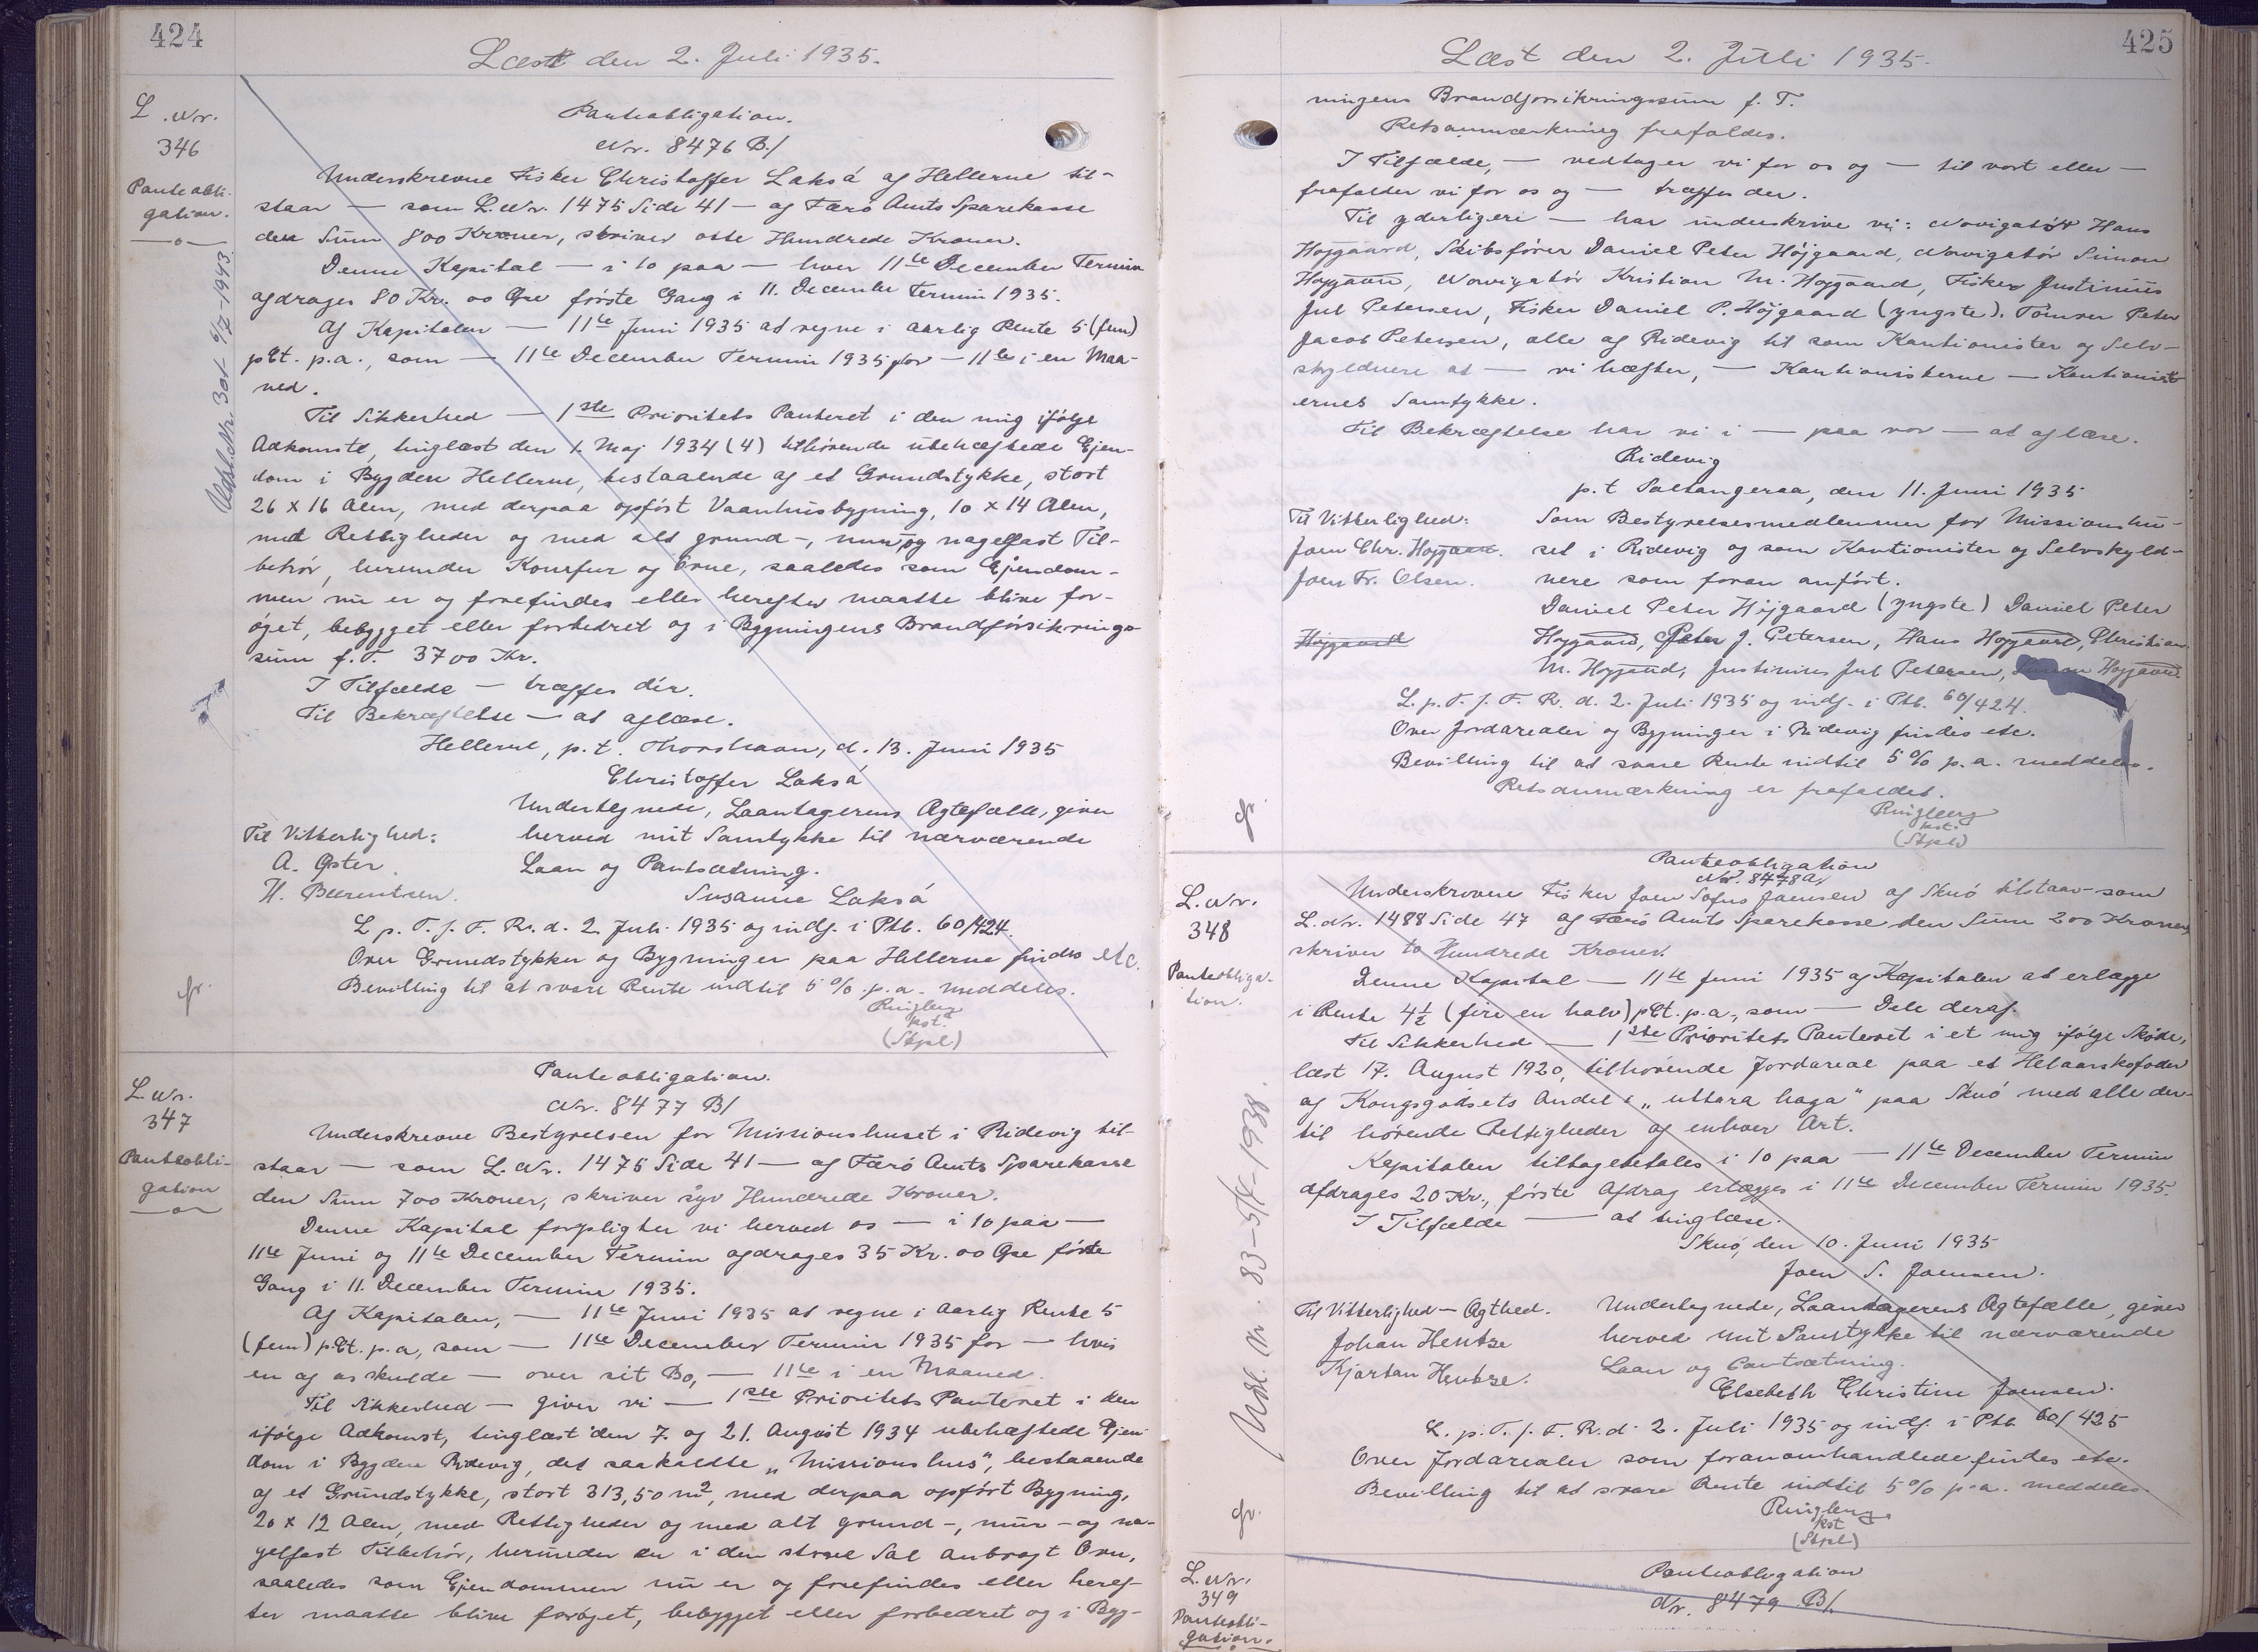 424
Læst den 2. Juli 1935.
L. Nr.
346
Panteobli-
gation.
Udsl. Nr. 301 - 6/7 - 1943.
Panteobligation.
Nr. 8476 B./
Underskrevne Fisker Christoffer Laksá af Hellerne til-
staar — som L. Nr. 1475 Side 41 — af Færø Amts Sparekasse
den Sum 800 Kroner, skriver otte Hundrede Kroner.
Denne Kapital — i 10 paa — hver 11te December Termin
afdrages 80 Kr. 00 Øre første Gang i 11. December Termin 1935.
Af Kapitalen — 11te Juni 1935 at regne i aarlig Rente 5 (fem)
pCt. p.a., som — 11te December Termin 1935 for — 11te i en Maa-
ned.
Til Sikkerhed — 1ste Prioritets Panteret i den mig ifølge
Adkomst, tinglæst den 1. Maj 1934 (4) tilhørende ubehæftede Ejen-
dom i Bygden Hellerne, bestaaende af et Grundstykke, stort
26 x 16 Alen, med derpaa opført Vaanhusbygning, 10 x 14 Alen,
med Rettigheder og med alt grund-, mur og nagelfast Til-
behør, herunder Komfur og Ovne, saaledes som Ejendom-
men nu er og forefindes eller herefter maatte blive for-
øget, bebygget eller forbedret og i Bygningens Brandforsikrings-
sum f. T. 3700 Kr.
I Tilfælde — træffes der.
Til Bekræftelse — at aflæse.
Hellerne, p.t. Thorshavn, d. 13. Juni 1935
Christoffer Laksá
Undertegnede, Laantagerens Ægtefælle, giver
Til Vitterlighed: herved mit Samtykke til nærværende
A. Øster. Laan og Pantsætning.
H. Beerentsen. Susanne Laksá
L. p. T. f. F. R. d. 2. Juli 1935 og indf. i Ptb. 60/424.
Over Grundstykker og Bygninger paa Hellerne findes etc.
Bevilling til at svare Rente indtil 5 % p.a. meddeles.
Ringberg
kst.
(Stpl)
L. Nr.
347
Panteobli-
gation
Panteobligation.
Nr. 8477 B/
Underskrevne Bestyrelsen for Missionshuset i Ridevig til-
staar — som L. Nr. 1476 Side 41 — af Færø Amts Sparekasse
den Sum 700 Kroner, skriver syv Hundrede Kroner.
Denne Kapital forpligter vi herved os — i 10 paa —
11te Juni og 11te December Termin afdrages 35 Kr. 00 Øre første
Gang i 11. December Termin 1935.
Af Kapitalen, — 11te Juni 1935 at regne i aarlig Rente 5
(fem) pCt. p.a, som — 11te December Termin 1935 for — hvis
en af os skulde — over sit Bo, — 11te i en Maaned.
Til Sikkerhed — giver vi — 1ste Prioritets Panteret i den
ifølge Adkomst, tinglæst den 7. og 21. August 1934 ubehæftede Ejen-
dom i Bygden Ridevig, det saakaldte „Missionshus“, bestaaende
af et Grundstykke, stort 313,50 m², med derpaa opført Bygning,
20 x 12 Alen, med Rettigheder og med alt grund-, mur- og na-
gelfast Tilbehør, herunder en i den store Sal anbragt Ovn,
saaledes som Ejendommen nu er og forefindes eller heref-
ter maatte blive forøget, bebygget eller forbedret og i Byg-
425
Læst den 2. Juli 1935.
ningens Brandforsikringssum f. T.
Retsanmærkning frafaldes.
I Tilfælde, — vedtager vi for os og — til vort eller —
frafalder vi for os og — træffes der.
Til yderligere — har underskrive vi: Navigatør Hans
Højgaard, Skibsfører Daniel Peter Højgaard, Navigatør Simon
Højgaard, Navigatør Kristian M. Højgaard, Fisker Justinus
Jul Petersen, Fisker Daniel P. Højgaard (yngste). Tømrer Peter
Jacob Petersen, alle af Ridevig til som Kautionister og Selv-
skyldnere at — vi hæfter, — Kautionisterne — Kautionist-
ernes Samtykke.
Til Bekræftelse har vi i — paa vor — at aflæse.
Ridevig
p.t Saltangeraa, den 11. Juni 1935
Til Vitterlighed: Som Bestyrelsesmedlemmer for Missionshu-
Joen Chr. Højgaard. set i Ridevig og som Kautionister og Selvskyld-
Joen Fr. Olsen. nere som foran anført.
Daniel Peter Højgaard (yngste) Daniel Peter
Højgaard Højgaard, Peter J. Petersen, Hans Højgaard, Christian
M. Højgaard, Justinus Jul Petersen, Simon Højgaard.
L. p. T. f. F. R. d. 2. Juli 1935 og indf. i Ptb. 60/424.
Over Jordarealer og Bygninger i Ridevig findes etc.
Bevilling til at svare Rente indtil 5 % p.a. meddeles.
Retsanmærkning er frafaldet.
Ringberg
kst.
(Stpl)
L. Nr.
348
Panteobliga-
tion.
Udsl. Nr. 83 - 5/4 - 1938.
Panteobligation
Nr. 8478 A/
Underskrevne Fisker Joen Sofus Joensen af Skuó tilstaar — som
L. Nr. 1488 Side 47 af Færø Amts Sparekasse den Sum 200 Kroner,
skriver to Hundrede Kroner.
Denne Kapital — 11te Juni 1935 af Kapitalen at erlægge
i Rente 4½ (fire en halv) pCt. p.a., som — Dele deraf.
Til Sikkerhed — 1ste Prioritets Panteret i et mig ifølge Skøde,
læst 17. August 1920, tilhørende Jordareal paa et Helaarskofoder
af Kongsgodsets Andel i „uttara haga“ paa Skuó med alle der-
til hørende Rettigheder af enhver Art.
Kapitalen tilbagebetales i 10 paa — 11te December Termin
afdrages 20 Kr., første Afdrag erlægges i 11te December Termin 1935.
I Tilfælde — at tinglæse.
Skuó, den 10. Juni 1935
Joen S. Joensen.
Til Vitterlighed — Ægthed. Undertegnede, Laantagerens Ægtefælle, giver
Johan Hentze herved mit Samtykke til nærværende
Kjartan Hentze. Laan og Pantsætning.
Elsebeth Christine Joensen.
L. p. T. f. F. R. d. 2. Juli 1935 og indf. i Ptb. 60/425
Over Jordarealer som foranomhandlede findes etc.
Bevilling til at svare Rente indtil 5 % p.a. meddeles.
Ringberg
kst
(Stpl)
L. Nr.
349
Panteobli-
gation.
Panteobligation
Nr. 8479 B/.